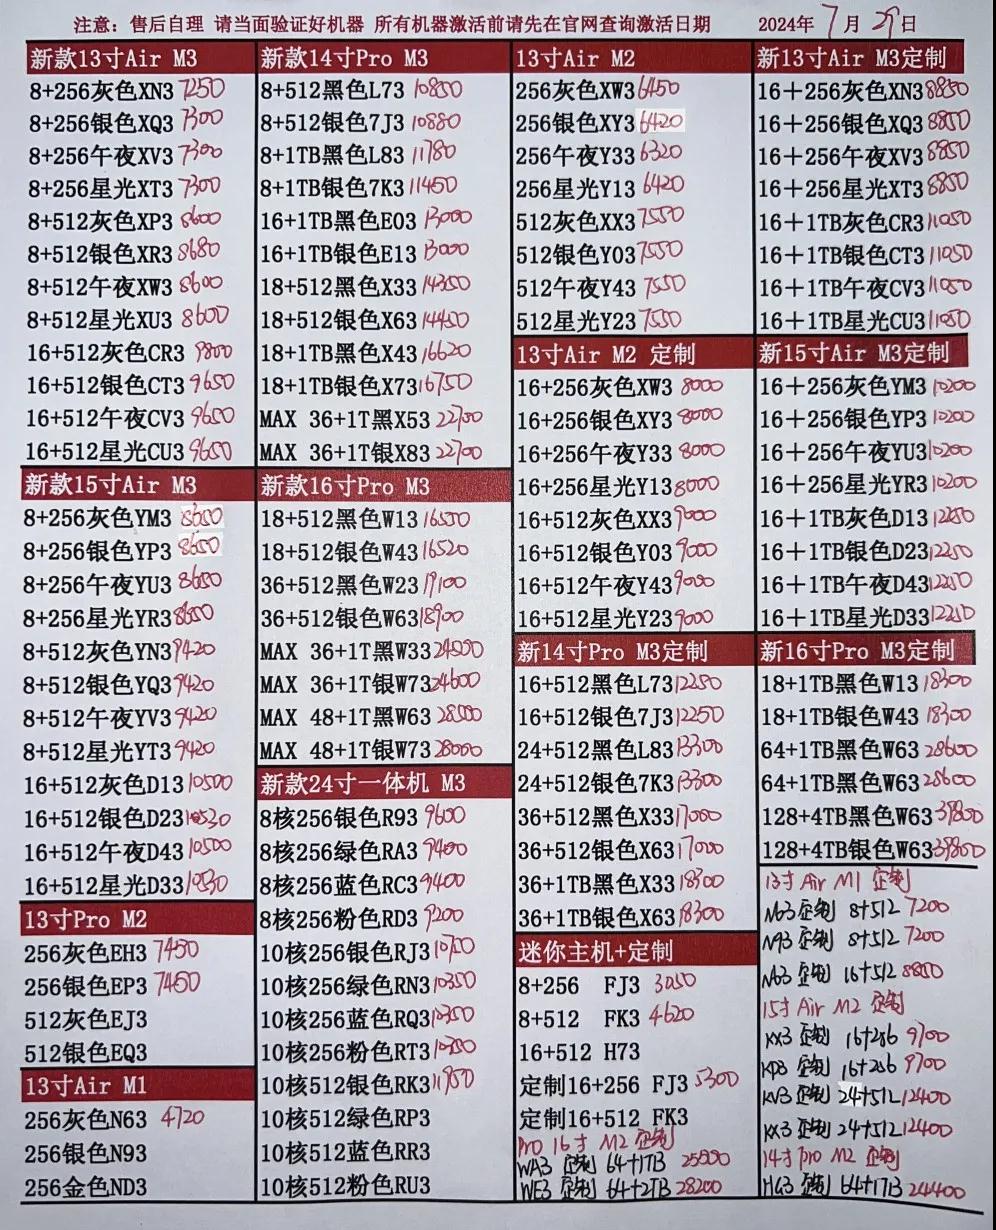 注意：售后自理 请当面验证好机器 所有机器激活前请先在官网查询激活日期 2024年7月29日
新款13寸Air M3
8+256灰色XN3 7250
8+256银色XQ3 7300
8+256午夜XV3 7300
8+256星光XT3 7300
8+512灰色XP3 8600
8+512银色XR3 8680
8+512午夜XW3 8600
8+512星光XU3 8600
16+512灰色CR3 9800
16+512银色CT3 9650
16+512午夜CV3 9650
16+512星光CU3 9650
新款15寸Air M3
8+256灰色YM3 8650
8+256银色YP3 8650
8+256午夜YU3 8650
8+256星光YR3 8650
8+512灰色YN3 9420
8+512银色YQ3 9420
8+512午夜YV3 9420
8+512星光YT3 9420
16+512灰色D13 10500
16+512银色D23 10530
16+512午夜D43 10500
16+512星光D33 10530
13寸Pro M2
256灰色EH3 7450
256银色EP3 7450
512灰色EJ3
512银色EQ3
13寸Air M1
256灰色N63 4720
256银色N93
256金色ND3
新款14寸Pro M3
8+512黑色L73 10850
8+512银色7J3 10880
8+1TB黑色L83 11780
8+1TB银色7K3 11450
16+1TB黑色E03 13000
16+1TB银色E13 13000
18+512黑色X33 14350
18+512银色X63 14450
18+1TB黑色X43 16620
18+1TB银色X73 16750
MAX 36+1T黑X53 22700
MAX 36+1T银X83 22700
新款16寸Pro M3
18+512黑色W13 16550
18+512银色W43 16520
36+512黑色W23 19100
36+512银色W63 18900
MAX 36+1T黑W33
MAX 36+1T银W73 24600
MAX 48+1T黑W63
MAX 48+1T银W73 28000
新款24寸一体机 M3
8核256银色R93 9600
8核256绿色RA3 9400
8核256蓝色RC3 9400
8核256粉色RD3 9200
10核256银色RJ3
10核256绿色RN3 10350
10核256蓝色RQ3 10350
10核256粉色RT3
10核512银色RK3 11950
10核512绿色RP3
10核512蓝色RR3
10核512粉色RU3
13寸Air M2
256灰色XW3 6450
256银色XY3 6420
256午夜Y33 6320
256星光Y13 6420
512灰色XX3 7550
512银色Y03 7550
512午夜Y43 7550
512星光Y23 7550
13寸Air M2 定制
16+256灰色XW3 8000
16+256银色XY3 8000
16+256午夜Y33 8000
16+256星光Y13 8000
16+512灰色XX3 9000
16+512银色Y03 9000
16+512午夜Y43 9000
16+512星光Y23 9000
新14寸Pro M3定制
16+512黑色L73 12250
16+512银色7J3 12250
24+512黑色L83 13300
24+512银色7K3 13300
36+512黑色X33 17000
36+512银色X63 17000
36+1TB黑色X33 18300
36+1TB银色X63 18300
迷你主机+定制
8+256 FJ3 3050
8+512 FK3 4620
16+512 H73
定制16+256 FJ3 5300
定制16+512 FK3
Pro 16寸 M2 定制
WA3 定制 64+1TB
WE3 定制 64+2TB 28200
新13寸Air M3定制
16＋256灰色XN3 8850
16＋256银色XQ3 8850
16＋256午夜XV3 8850
16＋256星光XT3 8850
16＋1TB灰色CR3 11050
16＋1TB银色CT3 11050
16＋1TB午夜CV3 11050
16＋1TB星光CU3 11050
新15寸Air M3定制
16＋256灰色YM3 10200
16＋256银色YP3 10200
16＋256午夜YU3 10200
16＋256星光YR3 10200
16＋1TB灰色D13 12250
16＋1TB银色D23 12250
16＋1TB午夜D43 12250
16＋1TB星光D33 12250
新16寸Pro M3定制
18+1TB黑色W13 18300
18+1TB银色W43 18300
64+1TB黑色W63 28600
64+1TB黑色W63 28600
128+4TB黑色W63 39800
128+4TB银色W63 39800
13寸 Air M1 定制
N63 定制 8+512 7200
N93 定制 8+512 7200
N63 定制 16+512 8850
15寸 Air M2 定制
KX3 定制 16+256 9700
KP3 定制 16+256 9700
KV3 定制 24+512 12400
KX3 定制 24+512 12400
14寸 Pro M2 定制
HG3 定制 64+1TB 24400